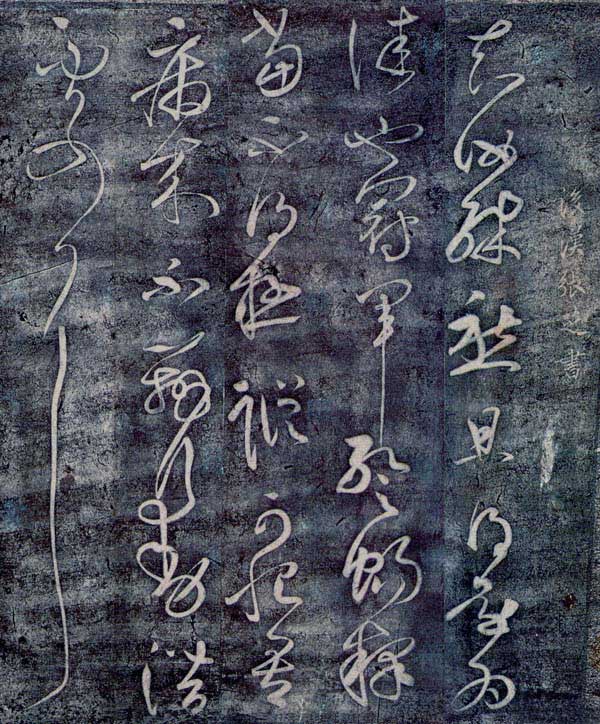 後漢張芝書
知汝殊愁且得還為
佳也冠軍暫暢釋
當不得極蹤可恨吾
病來不辦行動潛
不可耐